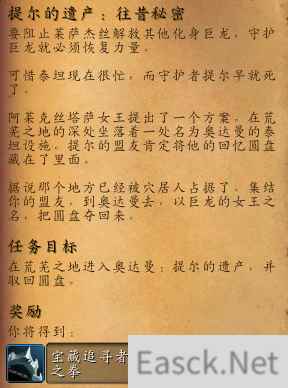 提尔的遗产：往昔秘密
要阻止莱萨杰丝解救其他化身巨龙，守护
巨龙就必须恢复力量。
可惜泰坦现在很忙，而守护者提尔早就死
了。
阿莱克丝塔萨女王提出了一个方案，在荒
芜之地的深处坐落着一处名为奥达曼的泰
坦设施。提尔的盟友肯定将他的回忆圆盘
藏在了里面。
据说那个地方已经被穴居人占据了，集结
你的盟友，到奥达曼去，以巨龙的女王之
名，把圆盘夺回来。
任务目标
在荒芜之地进入奥达曼：提尔的遗产，并
取回圆盘。
奖励
你将得到：
宝藏追寻者
之拳
Easck.Net